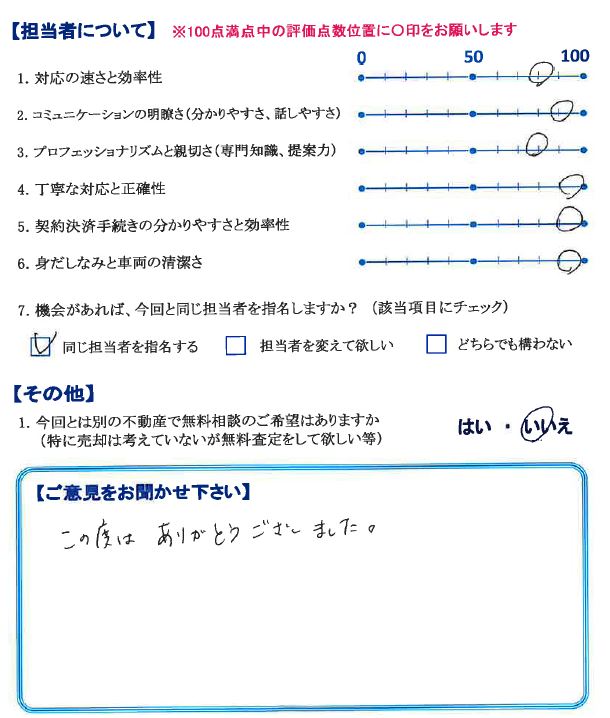 【担当者について】 ※100点満点中の評価点数位置に〇印をお願いします
0 50 100
1. 対応の速さと効率性
2. コミュニケーションの明瞭さ(分かりやすさ、話しやすさ)
3. プロフェッショナリズムと親切さ(専門知識、提案力)
4. 丁寧な対応と正確性
5. 契約決済手続きの分かりやすさと効率性
6. 身だしなみと車両の清潔さ
7. 機会があれば、今回と同じ担当者を指名しますか? (該当項目にチェック)
同じ担当者を指名する 担当者を変えて欲しい どちらでも構わない
【その他】
1. 今回とは別の不動産で無料相談のご希望はありますか
(特に売却は考えていないが無料査定をして欲しい等)
はい ・ いいえ
【ご意見をお聞かせ下さい】
この度は ありがとうございました。